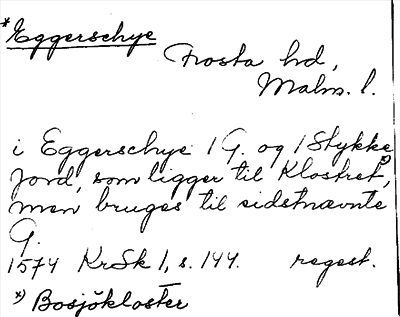 *Eggerschye
Frosta hd,
Malm. l.
i Eggerschye 1 G. og 1 Stykke
Jord, som ligger til Klostret*),
men bruges til sidstnævnte
G.
1574 KrSk 1, s. 144. regest.
*) Bosjökloster